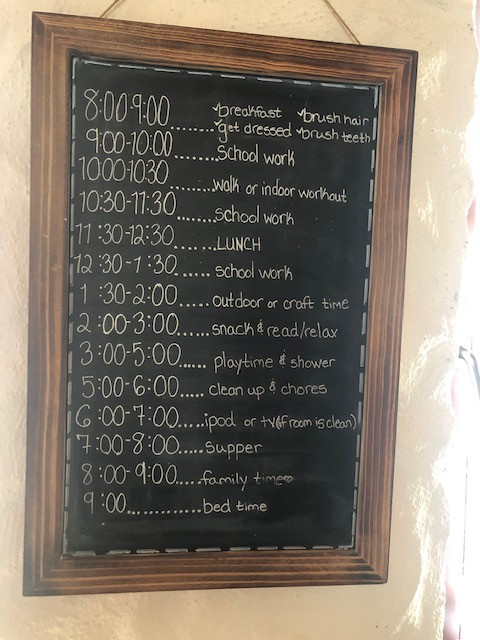 8:00-9:00 ✓breakfast ✓brush hair
........✓get dressed ✓brush teeth
9:00-10:00......school work
10:00-10:30.......walk or indoor workout
10:30-11:30.......school work
11:30-12:30.......LUNCH
12:30-1:30..... school work
1:30-2:00......outdoor or craft time
2:00-3:00......snack & read/relax
3:00-5:00..... playtime & shower
5:00-6:00.....clean up & chores
6:00-7:00.....ipod or tv(if room is clean)
7:00-8:00.....supper
8:00-9:00....family time♡
9:00............bed time